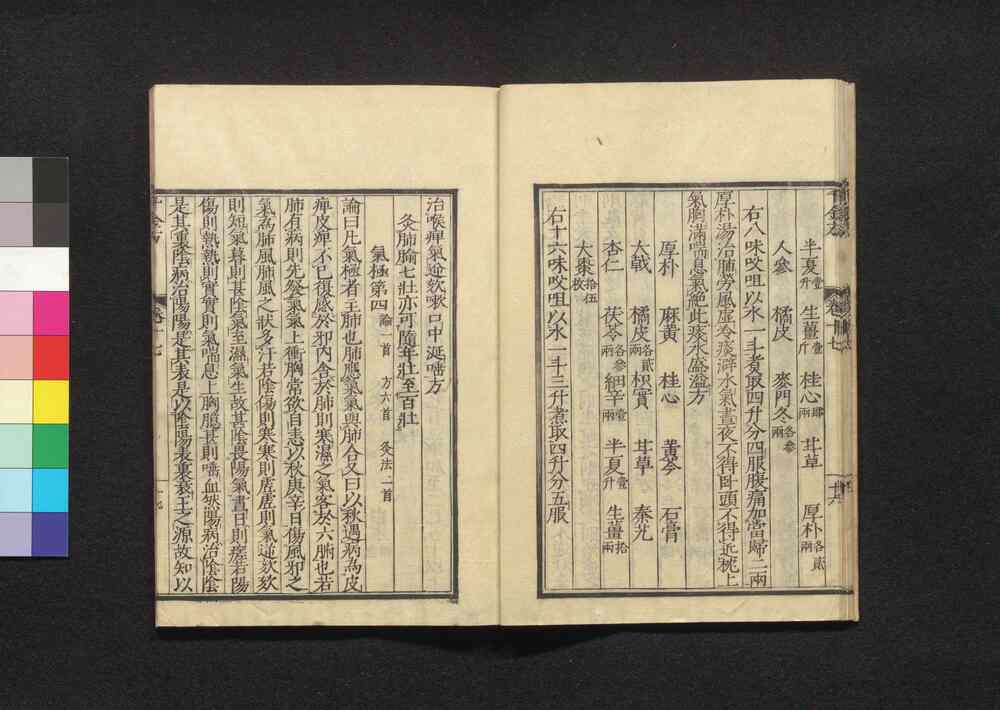 半夏壹升 生薑壹斤 桂心 甘草 厚朴各貳兩
人參 橘皮 麥門冬各參兩
右八味㕮咀以水一斗煮取四升分四服腹痛加當歸二兩
厚朴湯治肺勞風虛冷痰澼水氣晝夜不得臥頭不得近枕上
氣胸滿喘息氣絕此痰水盛溢方
厚朴 麻黃 桂心 黃芩 石膏
大戟 橘皮各貳兩 枳實 甘草 秦艽
杏仁 茯苓各參兩 細辛壹兩 半夏壹升 生薑拾兩
大棗拾伍枚
右十六味㕮咀以水一斗三升煮取四升分五服
治喉痺氣逆欬嗽口中涎唾方
灸肺腧七壯亦可隨年壯至百壯
氣極第四論一首 方六首 灸法二首
論曰凡氣極者主肺也肺應氣氣與肺合又曰以秋遇病為皮
痺皮痺不已復感於邪內舍於肺則寒濕之氣客於六腑也若
肺有病則先發氣氣上衝胸常欲自恚以秋庚辛日傷風邪之
氣為肺風肺風之狀多汗若陰傷則寒寒則虛虛則氣逆欬欬
則短氣暮則甚陰氣至濕氣生故甚陰畏陽氣晝日則瘥若陽
傷則熱熱則實實則氣喘息上胸臆甚則唾血然陽病治陰陰
是其裏陰病治陽陽是其表是以陰陽表裏衰王之源故知以